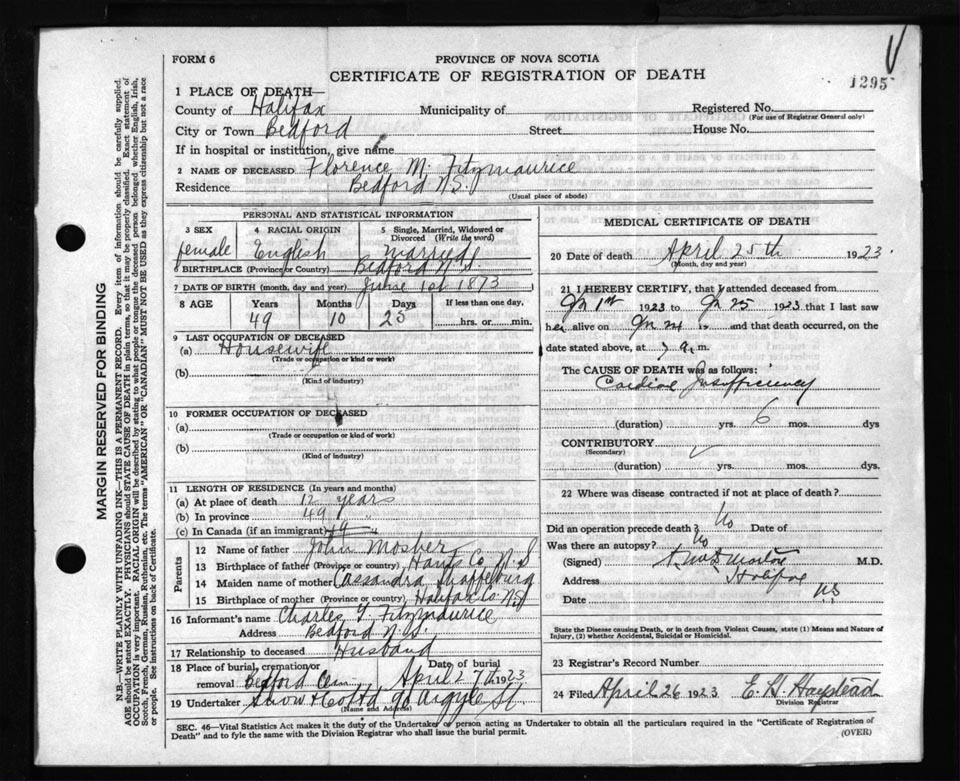 FORM 6
PROVINCE OF NOVA SCOTIA
CERTIFICATE OF REGISTRATION OF DEATH
1295
1 PLACE OF DEATH—
County of Halifax Municipality of Registered No.
(For use of Registrar General only)
City or Town Bedford Street House No.
If in hospital or institution, give name
2 NAME OF DECEASED Florence M. Fitzmaurice
Residence Bedford N.S.
(Usual place of abode)
PERSONAL AND STATISTICAL INFORMATION
3 SEX 4 RACIAL ORIGIN 5 Single, Married, Widowed or Divorced (Write the word)
female English married
6 BIRTHPLACE (Province or Country) Bedford N.S.
7 DATE OF BIRTH (month, day and year) June 1st 1873
8 AGE Years Months Days If less than one day,
49 10 25 hrs. or min.
9 LAST OCCUPATION OF DECEASED
(a) Housewife
(Trade or occupation or kind of work)
(b)
(Kind of industry)
10 FORMER OCCUPATION OF DECEASED
(a)
(Trade or occupation or kind of work)
(b)
(Kind of industry)
11 LENGTH OF RESIDENCE (In years and months)
(a) At place of death 12 years
(b) In province 49 "
(c) In Canada (if an immigrant) 49 "
Parents
12 Name of father John Mosher
13 Birthplace of father (Province or country) Hants Co. N.S
14 Maiden name of mother Cassandra
15 Birthplace of mother (Province or country) Halifax Co. N.S
16 Informant's name Charles Fitzmaurice
Address Bedford N.S.
17 Relationship to deceased Husband
18 Place of burial, cremation or removal Bedford Cem. Date of burial April 27th 1923
19 Undertaker Snow & Co Ltd 90 Argyle St
(Name and Address)
MEDICAL CERTIFICATE OF DEATH
20 Date of death April 25th 1923
(Month, day and year)
21 I HEREBY CERTIFY, that I attended deceased from
1st 1923 to 25 1923 that I last saw
her alive on 24 and that death occurred, on
date stated above, at 7 a.m.
The CAUSE OF DEATH was as follows:
Cardiac Insufficiency
(duration) yrs. 6 mos. dys
CONTRIBUTORY
(Secondary)
(duration) yrs. mos. dys.
22 Where was disease contracted if not at place of death?
Did an operation precede death? No Date of
Was there an autopsy? No
(Signed) M.D.
Address Halifax
Date NS
State the Disease causing Death, or in death from Violent Causes, state (1) Means and Nature of Injury, (2) whether Accidental, Suicidal or Homicidal.
23 Registrar's Record Number
24 Filed April 26 1923 E. G. Haystead
Division Registrar
SEC. 46—Vital Statistics Act makes it the duty of the Undertaker or person acting as Undertaker to obtain all the particulars required in the "Certificate of Registration of
Death" and to fyle the same with the Division Registrar who shall issue the burial permit. (OVER)
MARGIN RESERVED FOR BINDING
N.B.—WRITE PLAINLY WITH UNFADING INK—THIS IS A PERMANENT RECORD. Every item of information should be carefully supplied.
AGE should be stated EXACTLY. PHYSICIANS should STATE CAUSE OF DEATH in plain terms, so that it may be properly classified. Exact statement of
OCCUPATION is very important. RACIAL ORIGIN will be described by stating to what people or tongue the deceased person belonged whether English, Irish,
Scotch, French, German, Russian, Ruthenian, etc. The terms "AMERICAN" OR "CANADIAN" MUST NOT BE USED as they express citizenship but not a race
or people. See instructions on back of Certificate.